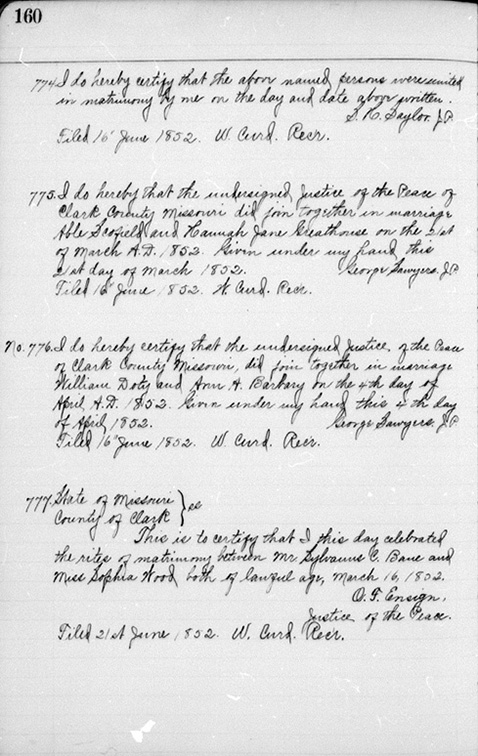 160
774. I do hereby certify that the above named persons were united
in matrimony by me on the day and date above written.
S. K. Saylor, J.P.
Filed 16" June 1852. W. Curd. Recr.
775. I do hereby that the undersigned Justice of the Peace of
Clark County, Missouri did join together in marriage
Able Scofield and Hannah Jane Greathouse on the 21st
of March A.D. 1852. Given under my hand this
21st day of March 1852. George Sawyers, J.P.
Filed 16" June 1852. W. Curd. Recr.
No. 776. I do hereby certify that the undersigned Justice of the Peace
of Clark County, Missouri, did join together in marriage
William Doty and Ann A. Barbary on the 4th day of
April, A.D. 1852. Given under my hand this 4th day
of April, 1852. George Sawyers, J.P.
Filed 16" June 1852. W. Curd. Recr.
777. State of Missouri
County of Clark } ss
This is to certify that I this day celebrated
the rites of matrimony between Mr. Sylvanus C. Bane and
Miss Sophia Wood both of lawful age, March 16, 1852.
O. F. Ensign,
Justice of the Peace.
Filed 21st June 1852. W. Curd. Recr.